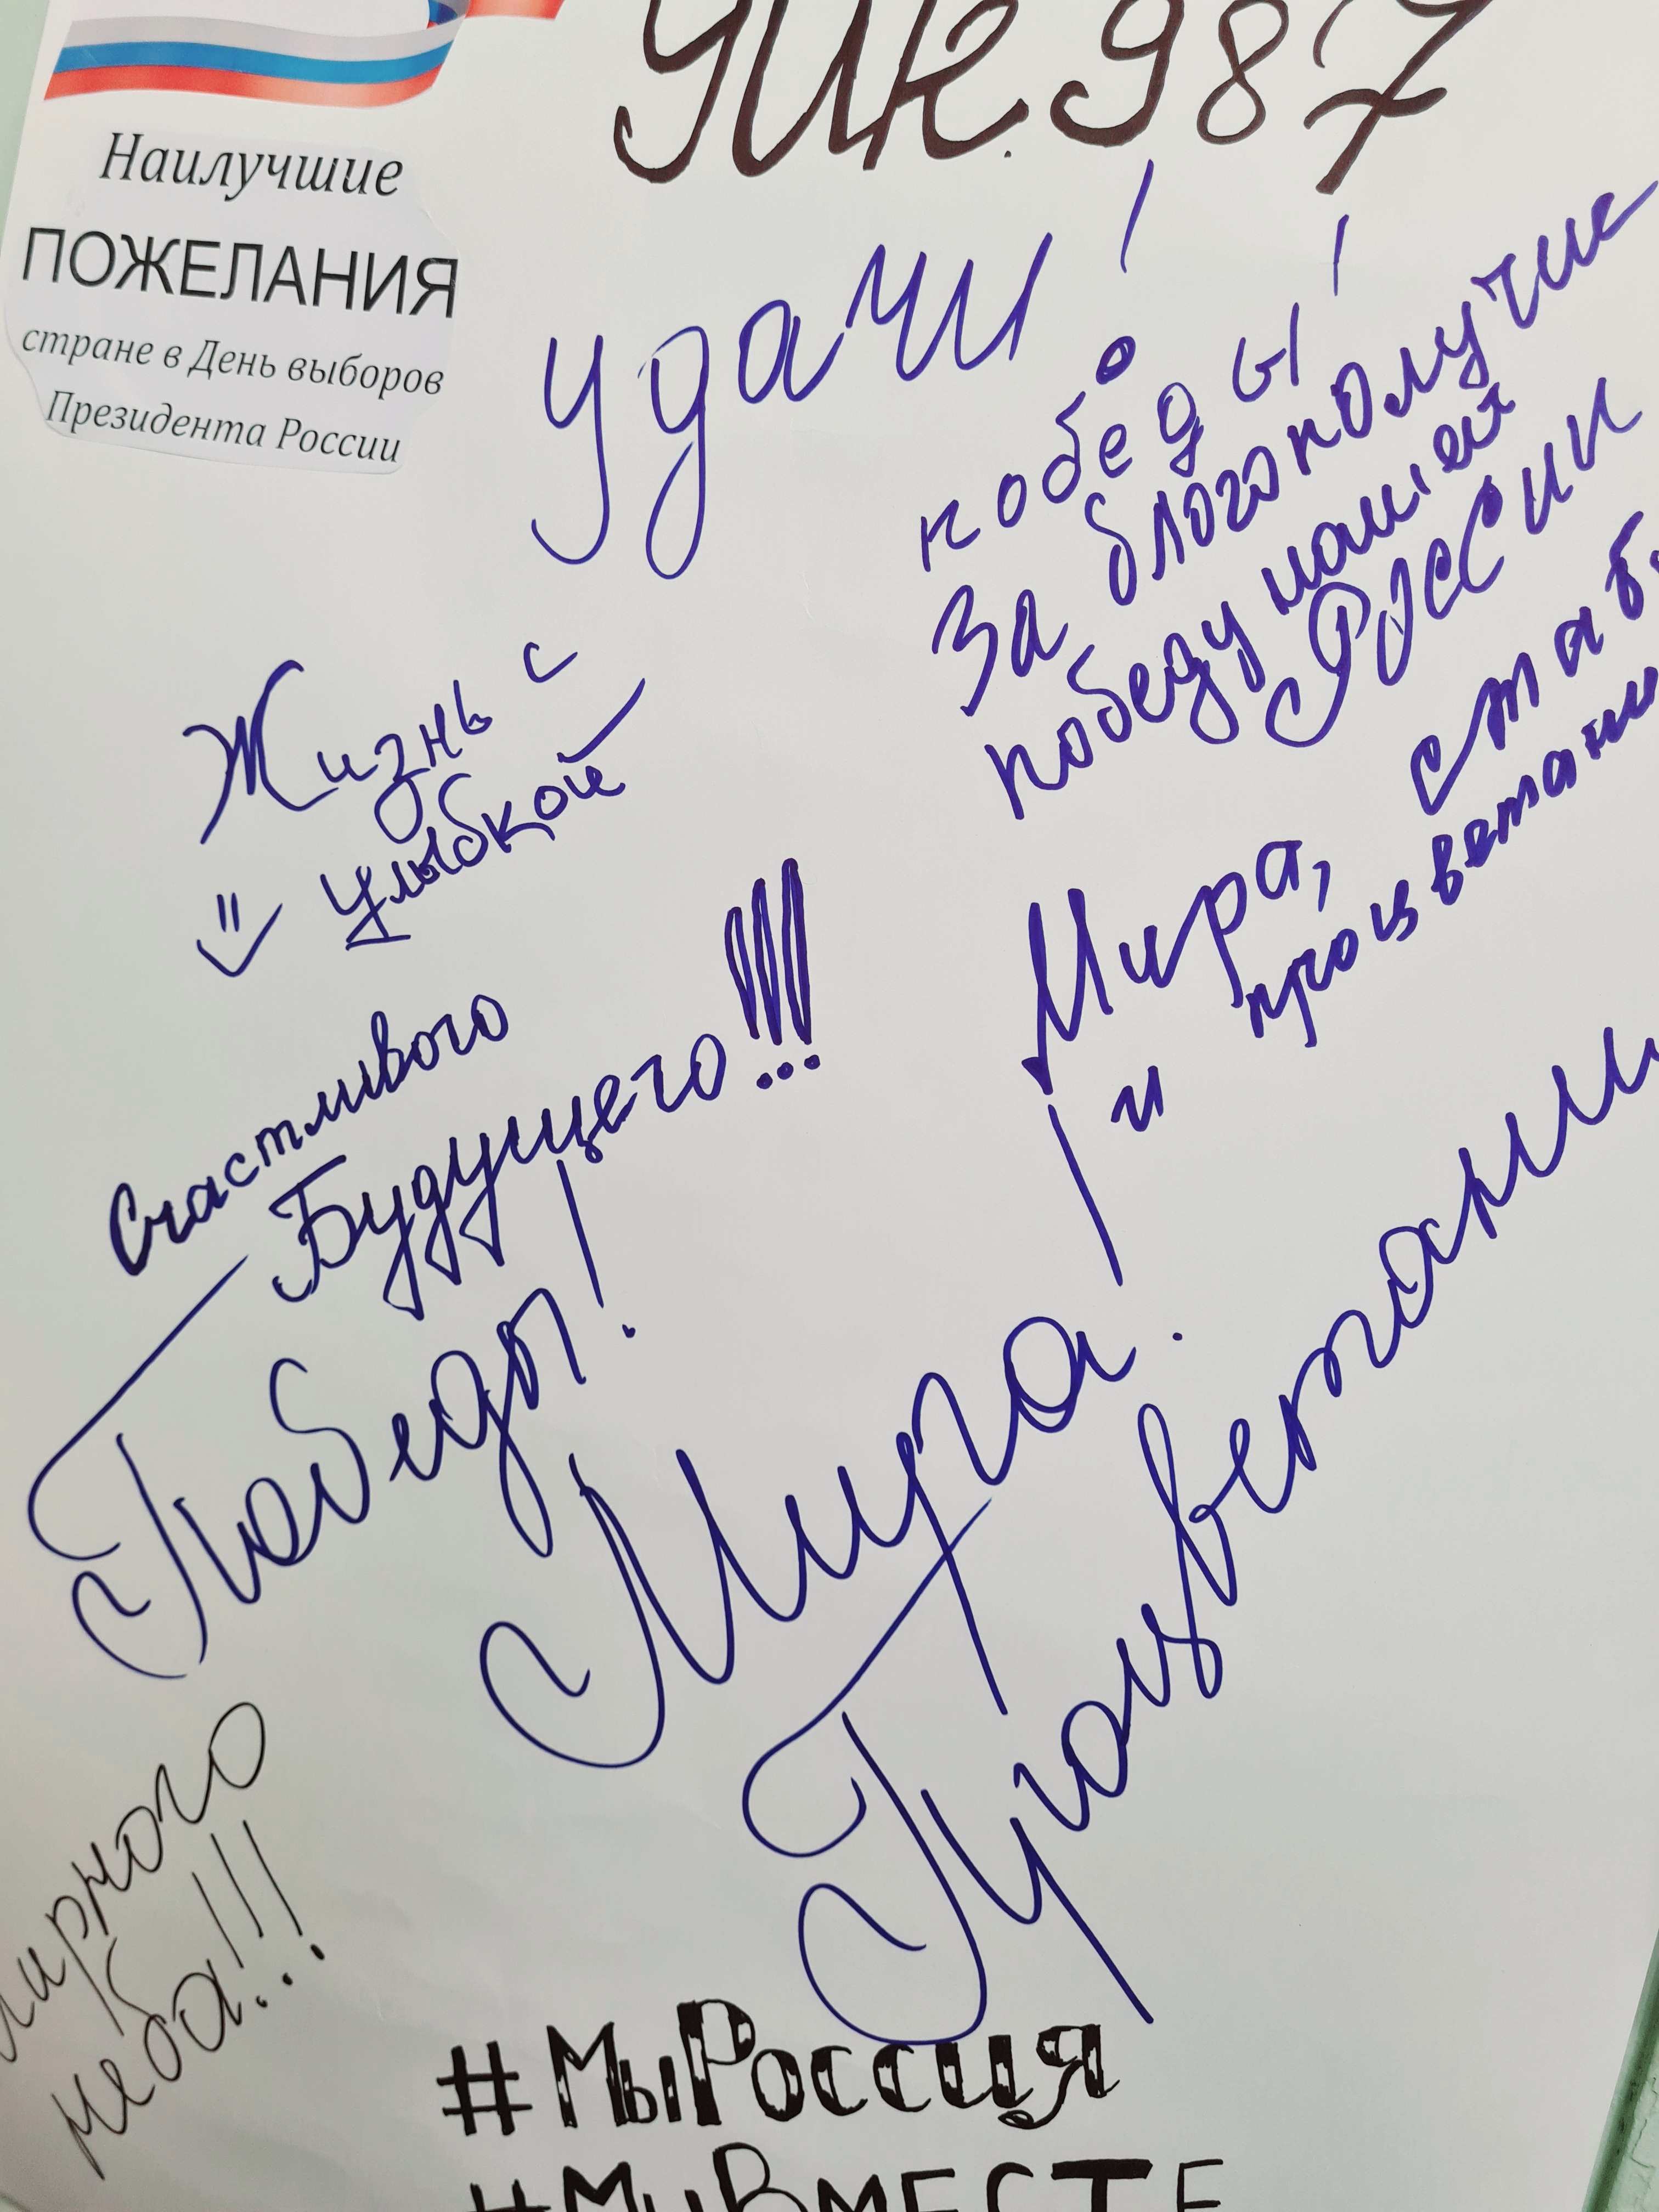 УИК 987
Наилучшие
ПОЖЕЛАНИЯ
стране в День выборов
Президента России
Удачи!
победы!
За благополучие
победу нашей
России
Жизнь с
улыбкой
Мира,
и процветани
Счастливого
Будущего!!!
Победы!
Мира!
Процветани
мирного
неба!!!
#МыРоссия
#МыВместе